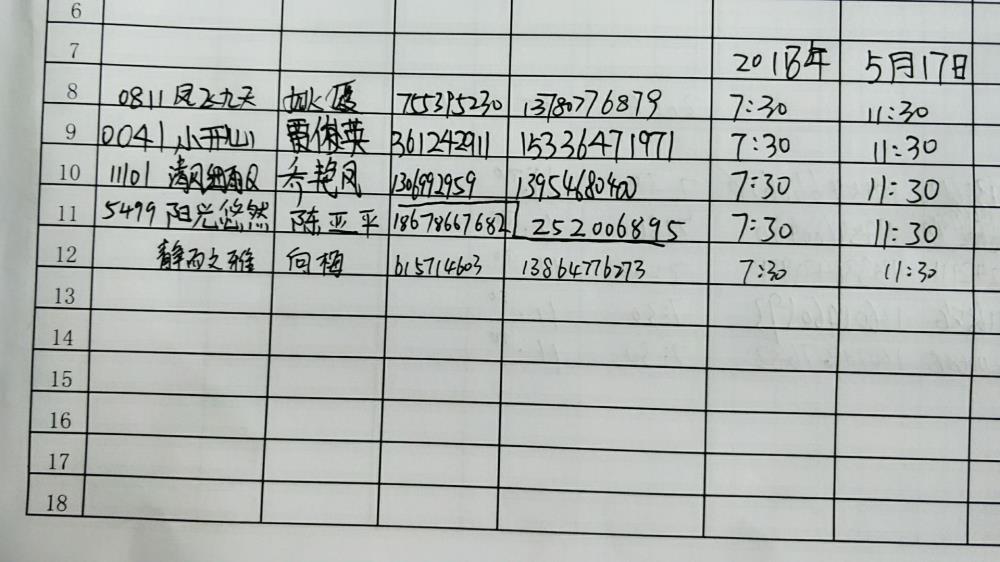 6
7 2018年 5月17日
8 0811 凤飞九天 755395230 13780776879 7:30 11:30
9 0041 小开心 贾俊英 361242911 15336471971 7:30 11:30
10 11101 清风细雨 乔艳风 1306992959 13954680400 7:30 11:30
11 5499 阳光悠然 陈亚平 18678667682 252006895 7:30 11:30
12 静而之雅 向梅 615714603 13864776273 7:30 11:30
13
14
15
16
17
18